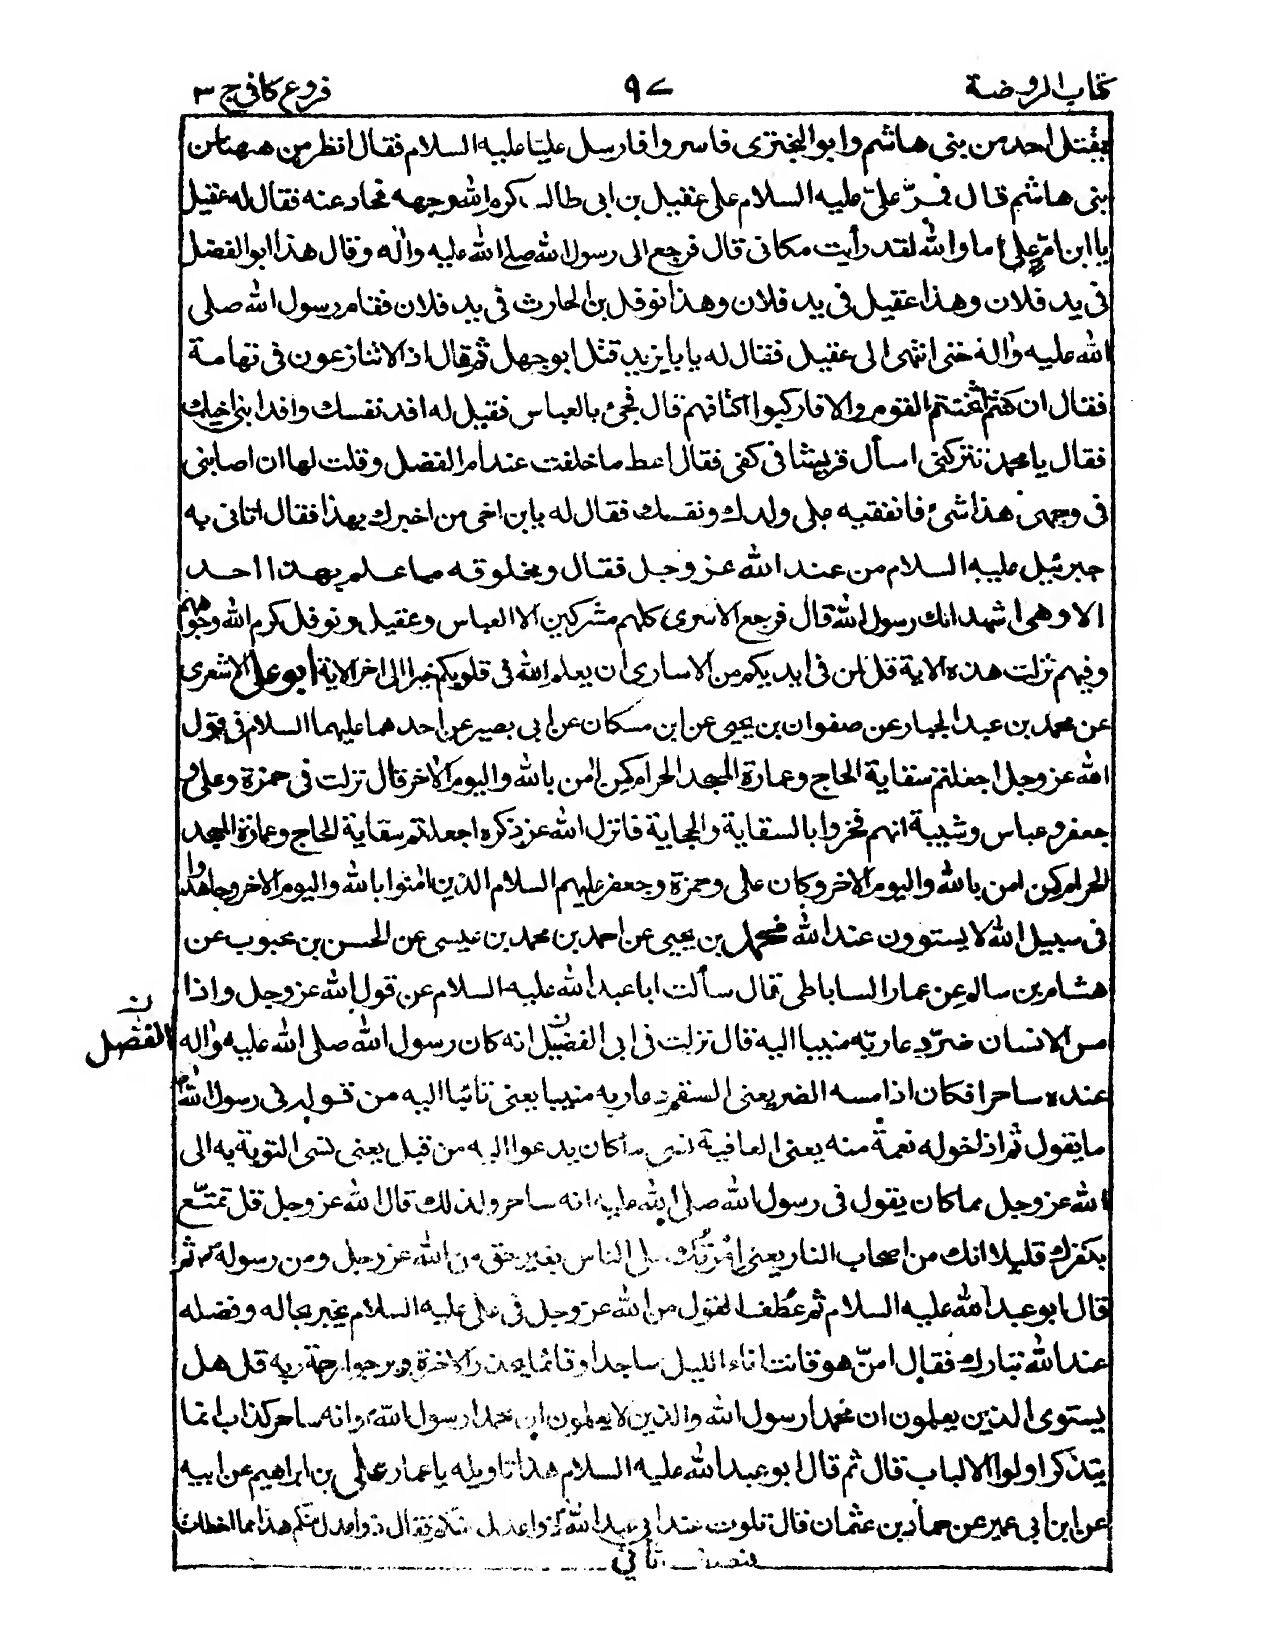 كتاب الروضة ٩٧ فروع كافي ج ٣
يقتل احد من بنى هاشم وابو البخترى فاسروا فارسل عليا عليه السلام فقال انظر من ههنا من
بنى هاشم قال فمرّ علىّ عليه السلام على عقيل بن ابى طالب كرم الله وجهه فحاد عنه فقال له عقيل
يا ابن امّ علىّ اما والله لقد رأيت مكانى قال فرجع الى رسول الله صلى الله عليه واٰله وقال هذا ابو الفضل
فى يد فلان وهذا عقيل فى يد فلان وهذا نوفل بن الحارث فى يد فلان فقام رسول الله صلى
الله عليه واٰله حتى انتهى الى عقيل فقال له يا با يزيد قتل ابو جهل ثم قال اذا لا تنازعون فى تهامة
فقال ان كنتم اثخنتم القوم والا فاركبوا اكتافهم قال فجئ بالعباس فقيل له افد نفسك وافد ابنى اخيك
فقال يا محمد تتركنى اسأل قريشا فى كفى فقال اعط ما خلفت عند ام الفضل وقلت لها ان اصابنى
فى وجهى هذا شئ فانفقيه على ولدك ونفسك فقال له يا بن اخى من اخبرك بهذا فقال اتانى به
جبرئيل عليه السلام من عند الله عز وجل فقال ومحلوفه ما علم بهذا احد
الا وهى اشهد انك رسول الله قال فرجع الاسرى كلهم مشركين الا العباس وعقيل ونوفل كرم الله وجوههم
وفيهم نزلت هذه الاية قل لمن فى ايديكم من الاسارى ان يعلم الله فى قلوبكم خيرا الى اخر الاية ابو على الاشعرى
عن محمد بن عبد الجبار عن صفوان بن يحيى عن ابن مسكان عن ابى بصير عن احدهما عليهما السلام فى قول
الله عز وجل اجعلتم سقاية الحاج وعمارة المسجد الحرام كمن اٰمن بالله واليوم الاٰخر قال نزلت فى حمزة وعلى و
جعفر وعباس وشيبة انهم فخروا بالسقاية والحجابة فانزل الله عز ذكره اجعلتم سقاية الحاج وعمارة المسجد
الحرام كمن اٰمن بالله واليوم الاٰخر وكان على وحمزة وجعفر عليهم السلام الذين اٰمنوا بالله واليوم الاٰخر وجاهدوا
فى سبيل الله لا يستوون عند الله محمد بن يحيى عن احمد بن محمد بن عيسى عن الحسن بن محبوب عن
هشام بن سالم عن عمار الساباطى قال سألت ابا عبد الله عليه السلام عن قول الله عز وجل واذا
مس الانسان ضرّ دعا ربّه منيبا اليه قال نزلت فى ابى الفضيل انه كان رسول الله صلى الله عليه واٰله
الفصل ن
عنده ساحرا فكان اذا مسه الضر يعنى السقم دعا ربه منيبا يعنى تائبا اليه من قوله فى رسول الله
ما يقول ثم اذا خوله نعمة منه يعنى العافية نسى ما كان يدعوا اليه من قبل يعنى نسى التوبة به الى
الله عز وجل مما كان يقول فى رسول الله صلى الله عليه انه ساحر ولذلك قال الله عز وجل قل تمتّع
بكفرك قليلا انك من اصحاب النار يعنى اِمْرَتُك على الناس بغير حق من الله عز وجل ومن رسوله ثم
قال ابو عبد الله عليه السلام ثم عُطف القول من الله عز وجل فى على عليه السلام يخبر بحاله وفضله
عند الله تبارك فقال امنّ هو قانت اناء الليل ساجدا وقائما يحذر الاٰخرة ويرجوا رحمة ربه قل هل
يستوى الذين يعلمون ان محمدا رسول الله والذين لا يعلمون ان محمدا رسول الله وانه ساحر كذاب انما
يتذكر اولوا الالباب قال ثم قال ابو عبد الله عليه السلام هذا تاويله يا عمار على بن ابراهيم عن ابيه
عن ابن ابى عمير عن حماد بن عثمان قال تلوت عند ابى عبد الله ذوا عدل منكم فقال ذو عدل منكم هذا مما اخطات
نصف ثانى